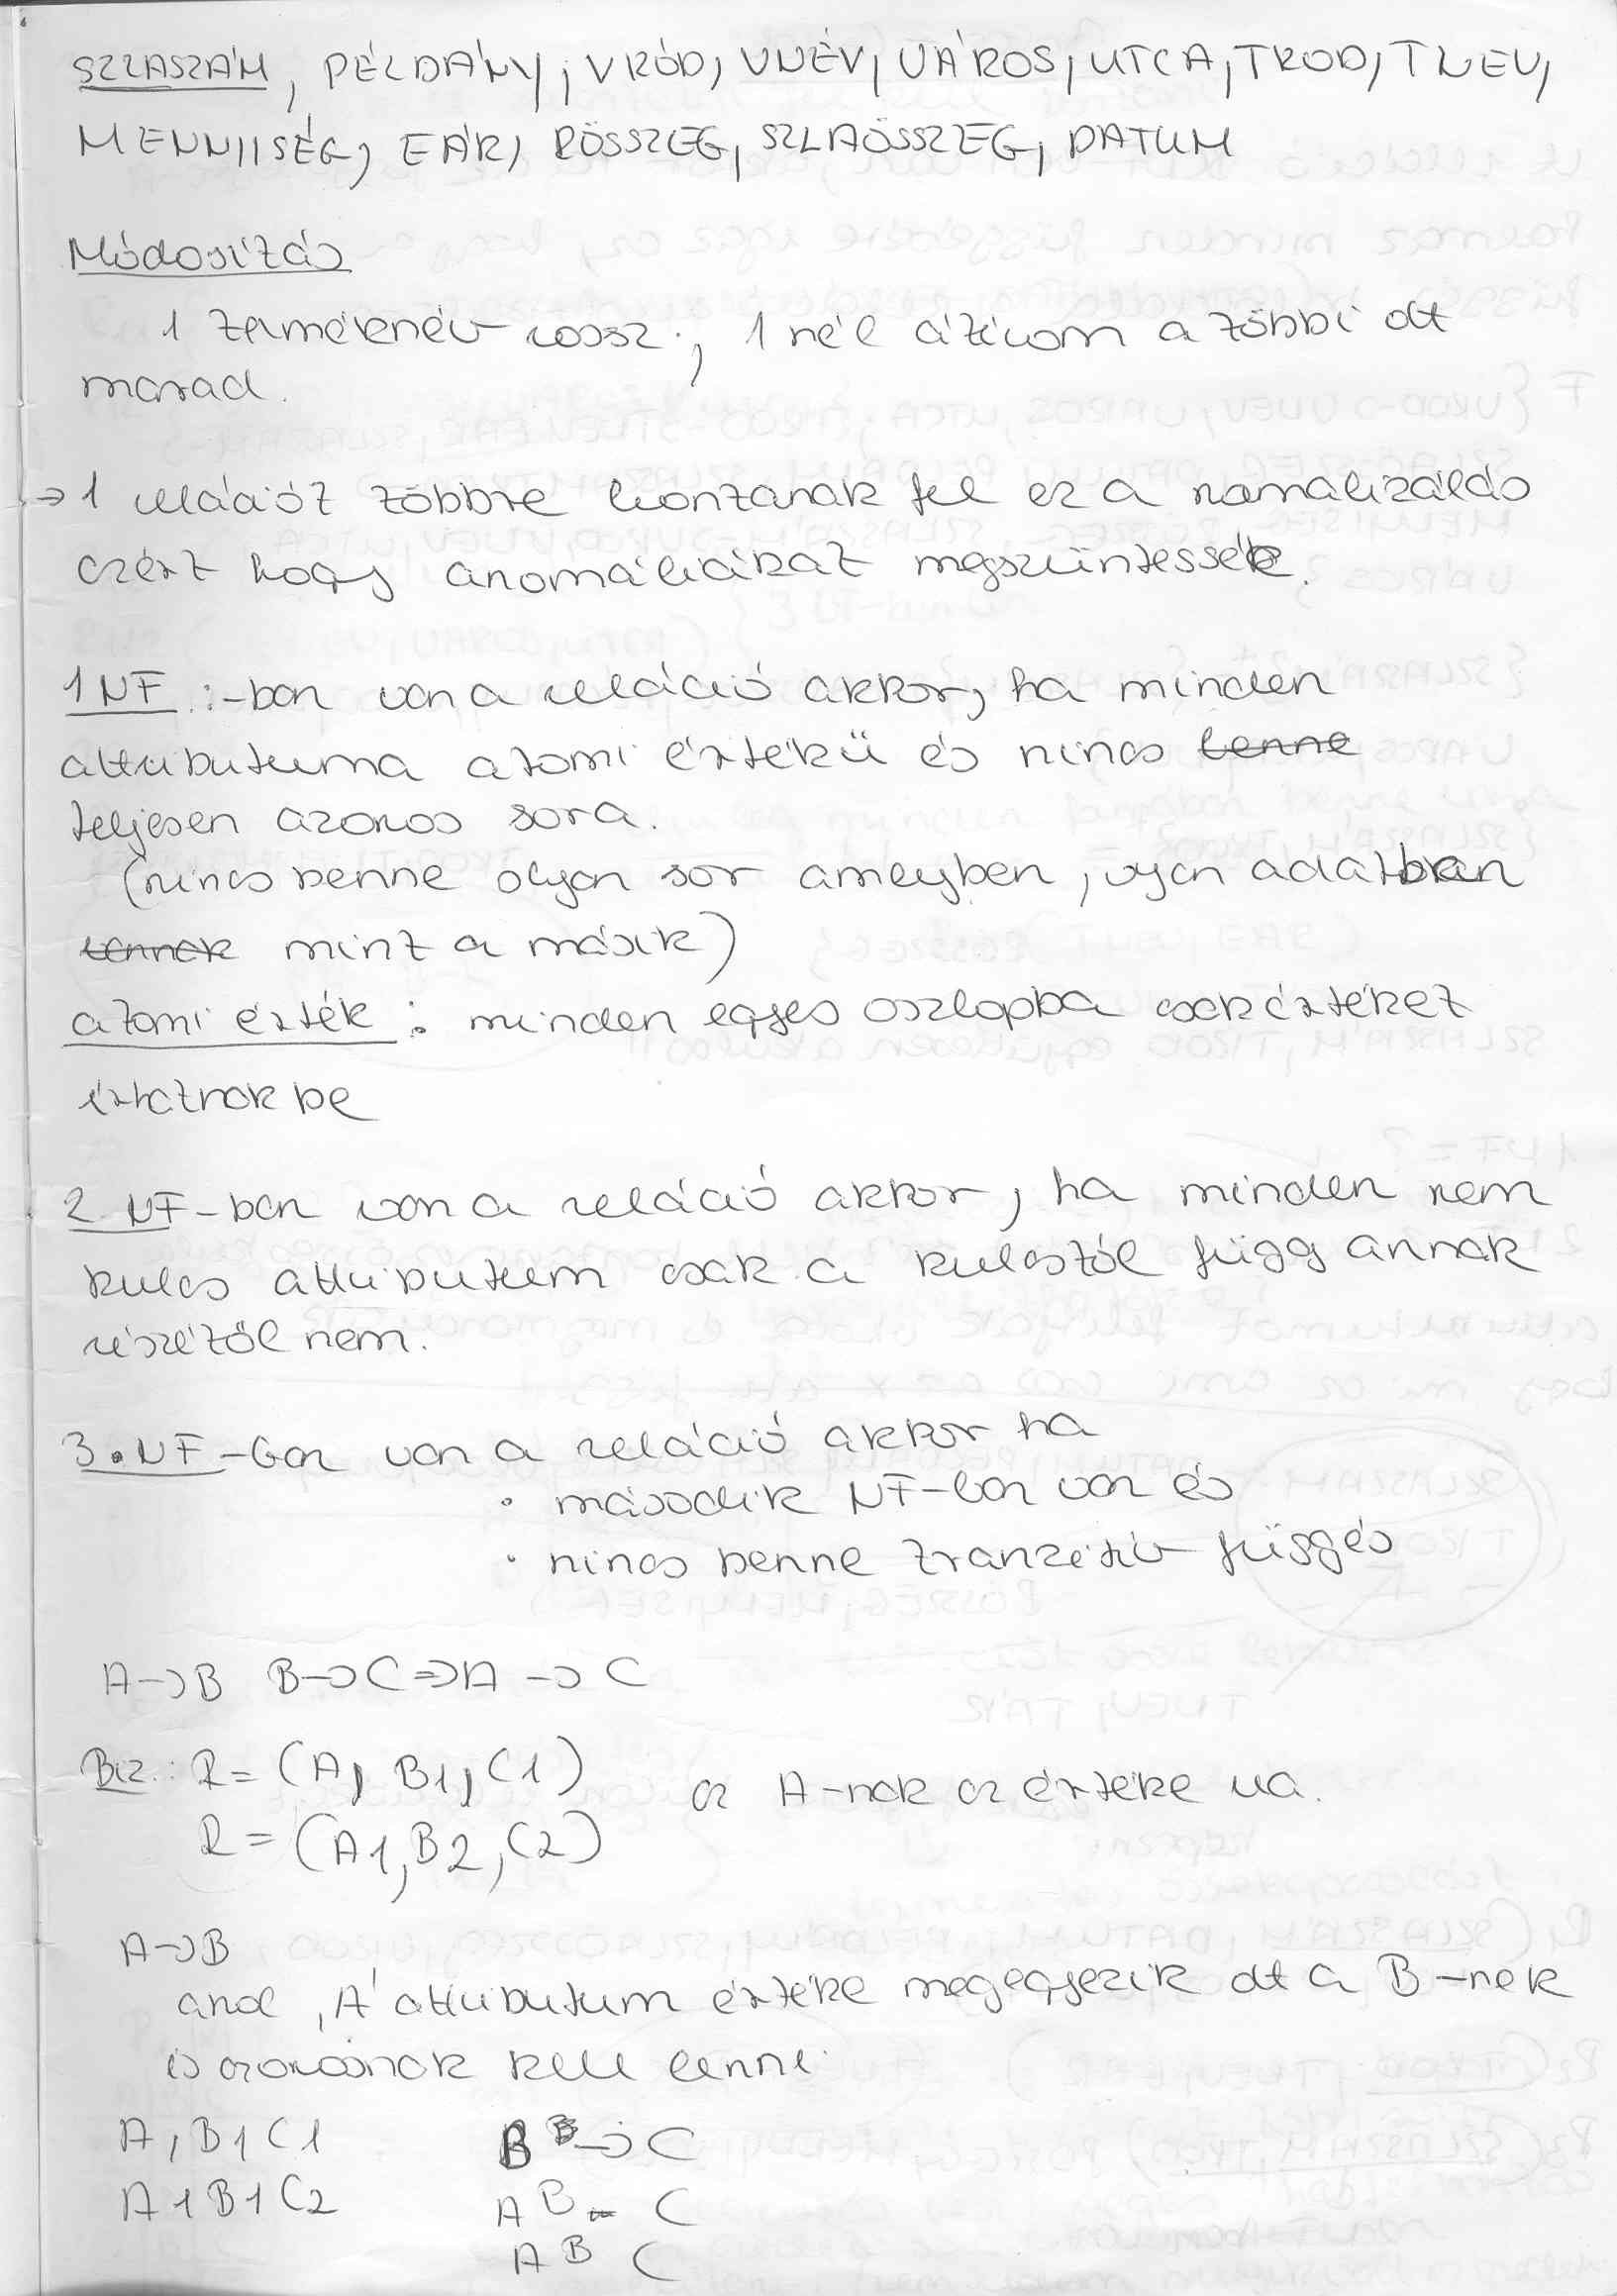 SZLASZÁM, PÉLDÁNY, VKÓD, VNÉV, VÁROS, UTCA, TKOD, TNEV,
MENNYISÉG, EÁR, RÖSSZEG, SZLAÖSSZEG, DATUM
Módosítás
1 terméknév rossz, 1 nél átírom a többi ott
marad.
→ 1 relációt többre bontanak fel ez a normalizálás
azért hogy anomáliákat megszüntessék.
1NF :-ban van a reláció akkor, ha minden
attributuma atomi értékű és nincs benne
teljesen azonos sora.
(nincs benne olyan sor amelyben, ugyan adatban
lennek mint a másik)
atomi érték : minden egyes oszlopba csak értéket
írhatnak be
2 NF-ban van a reláció akkor, ha minden nem
kulcs attributum csak a kulcstól függ annak
részétől nem.
3.NF-ban van a reláció akkor ha
• második NF-ban van és
• nincs benne tranzitív függés
A→B B→C⇒A→C
Biz.: R=(A, B1, C1) az A-nak az értéke ua.
R=(A1, B2, C2)
A→B
ahol 'A' attributum értéke megegyezik ott a B-nek
is azonosnak kell lenni
A, B1 C1 B B→C
A1 B1 C2 A B - C
A B C